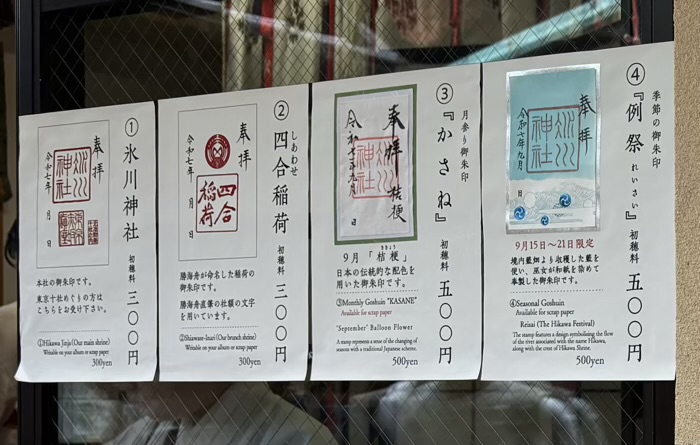 ①氷川神社
初穂料 三〇〇円
奉拝
氷川神社
令和七年 月 日
本社の御朱印です。
東京十社めぐりの方は
こちらをお受け下さい。
①Hikawa Jinja (Our main shrine)
Writable on your album or scrap paper
300yen
②四合稲荷
しあわせ
初穂料 三〇〇円
奉拝
四合稲荷
令和七年 月 日
勝海舟が命名した稲荷の
御朱印です。
勝海舟直筆の社額の文字
を用いています。
②Shiawase-Inari (Our brunch shrine)
Writable on your album or scrap paper
300yen
月参り御朱印
③『かさね』
初穂料 五〇〇円
奉拝 桔梗
氷川神社
令和七年九月 日
9月「桔梗」
ききょう
日本の伝統的な配色を
用いた御朱印です。
③Monthly Goshuin "KASANE"
Available for scrap paper
'September' Balloon Flower
A stamp represents a sense of the changing of
seasons with a traditional Japanese scheme.
500yen
季節の御朱印
④『例祭』
れいさい
初穂料 五〇〇円
奉拝
氷川神社
令和七年九月 日
9月15日〜21日限定
境内藍畑より収穫した藍を
使い、巫女が和紙を染めて
奉製した御朱印です。
④Seasonal Goshuin
Available for scrap paper
Reitai (The Hikawa Festival)
The stamp features a design symbolizing the flow
of the river associated with the name Hikawa,
along with the crest of Hikawa Shrine.
500yen